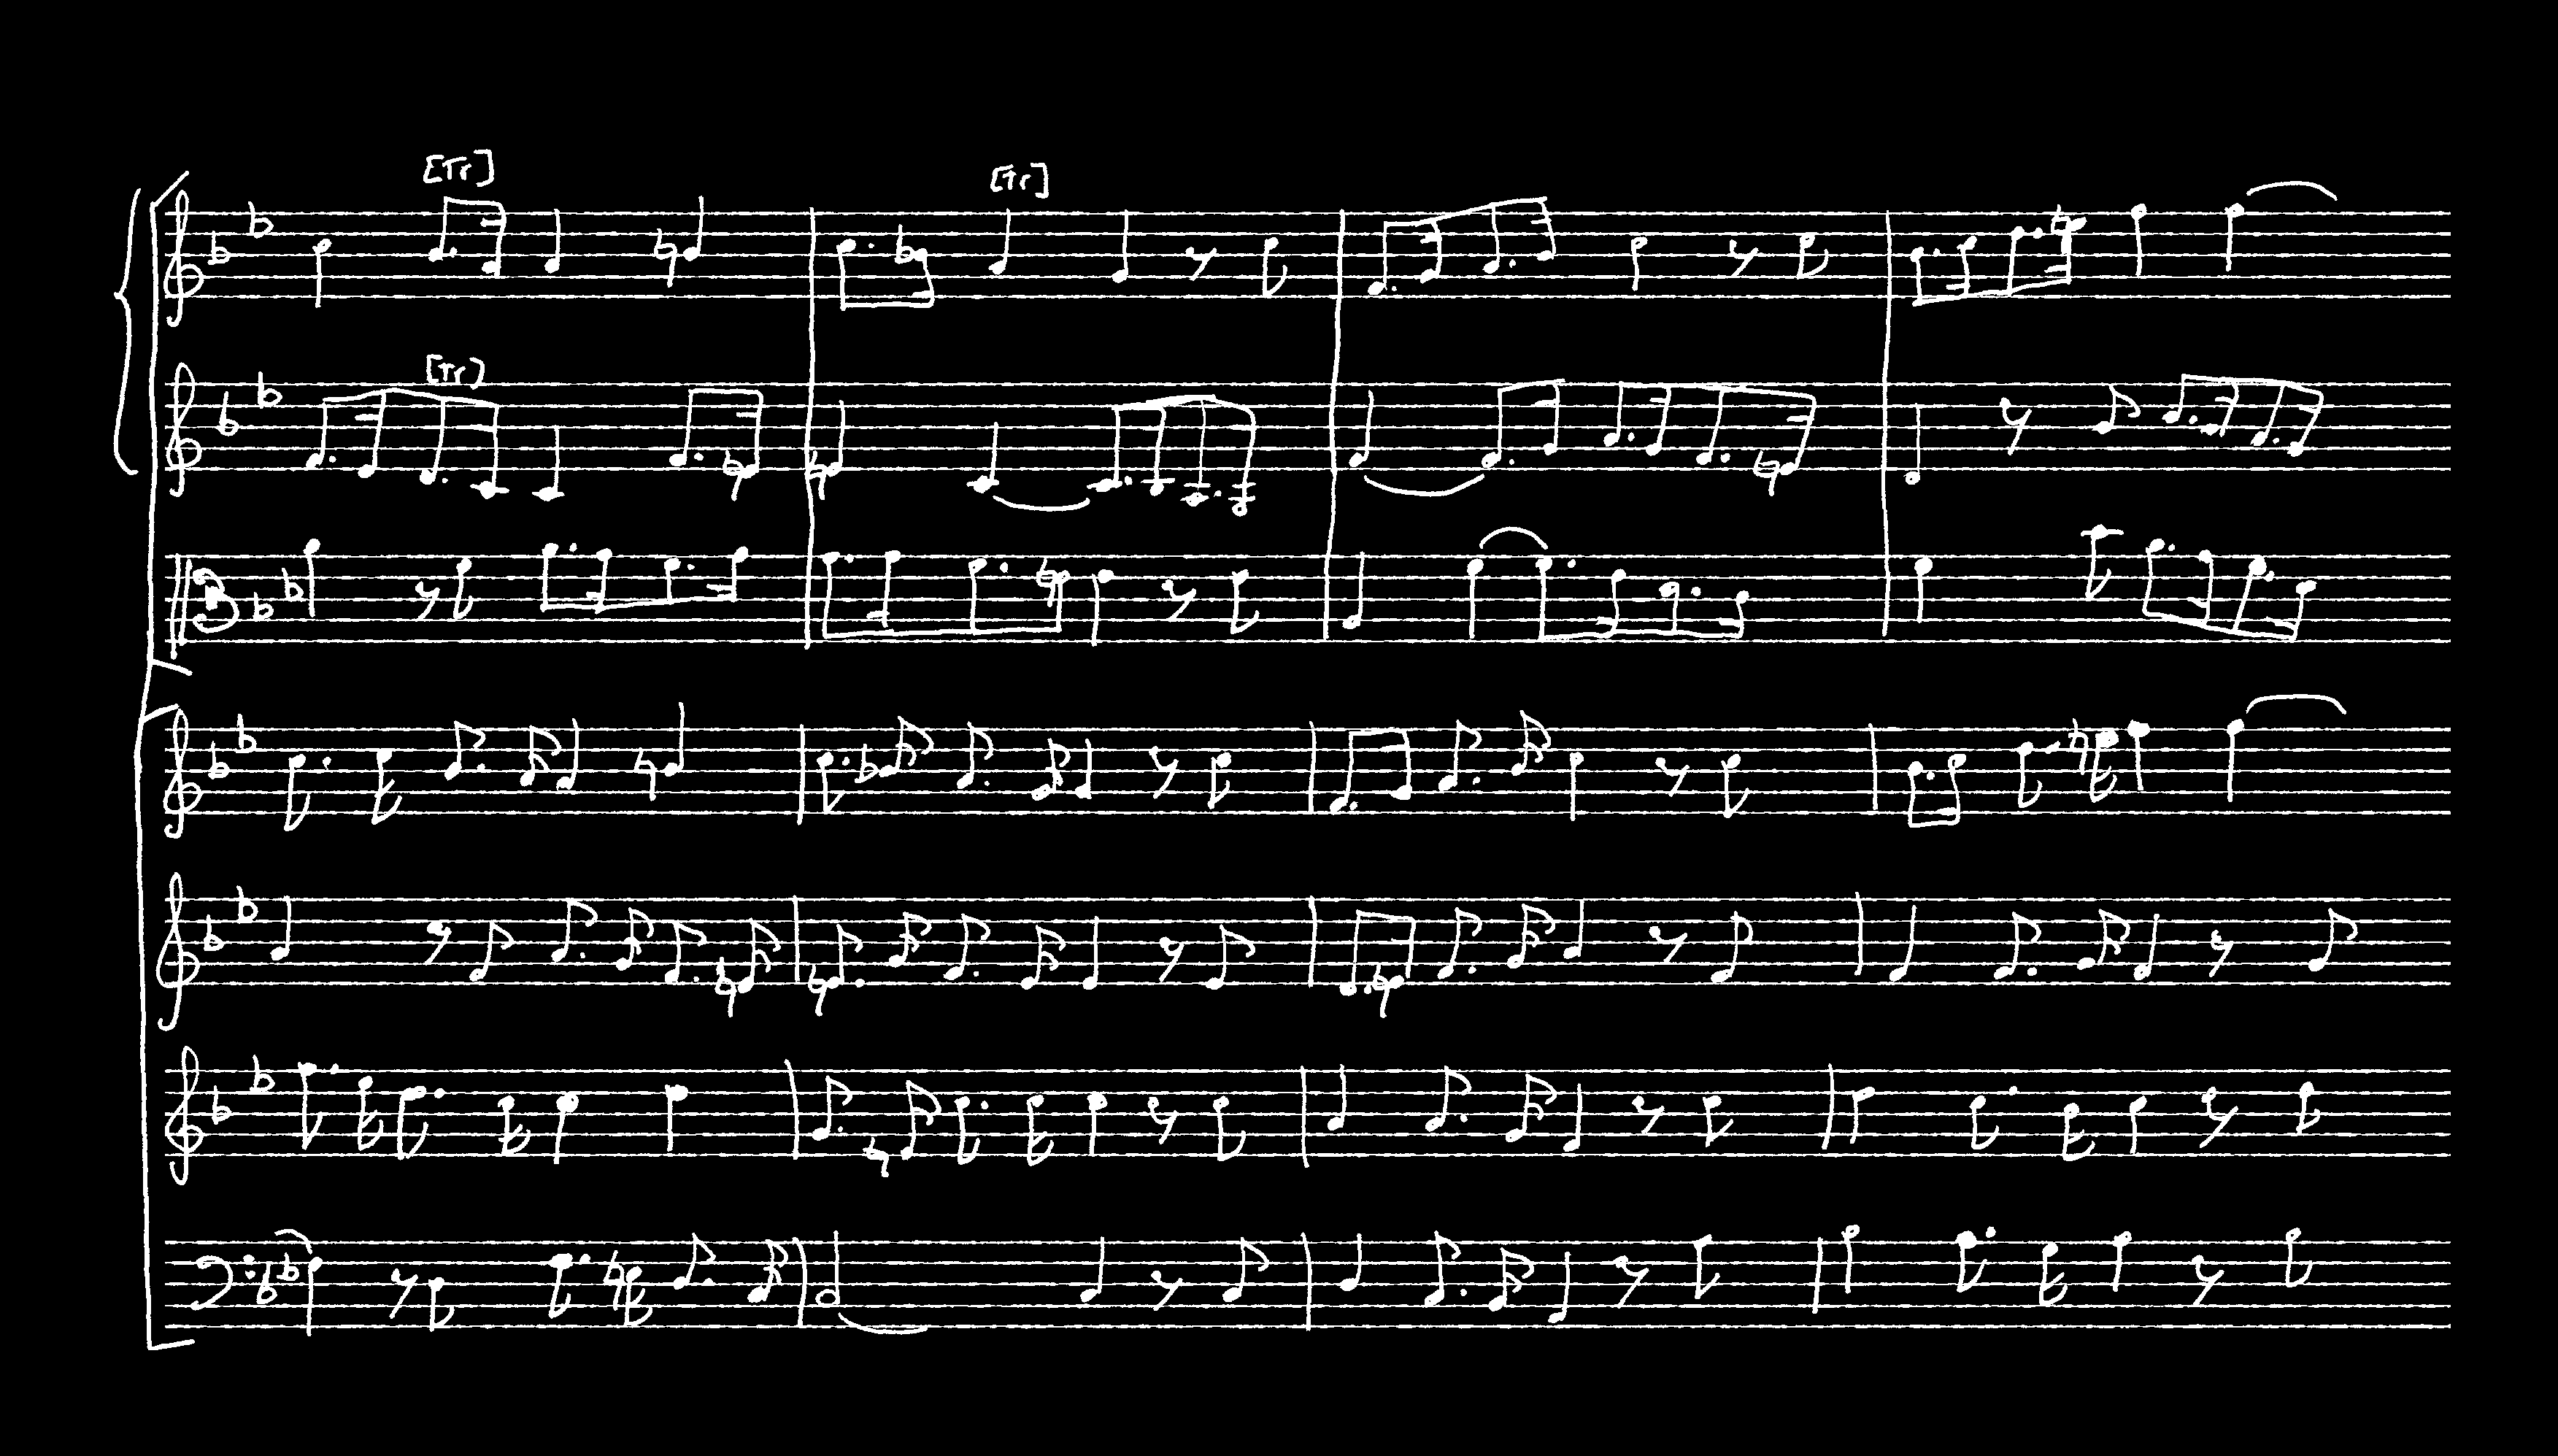 [Tr] [Tr]
[Tr]